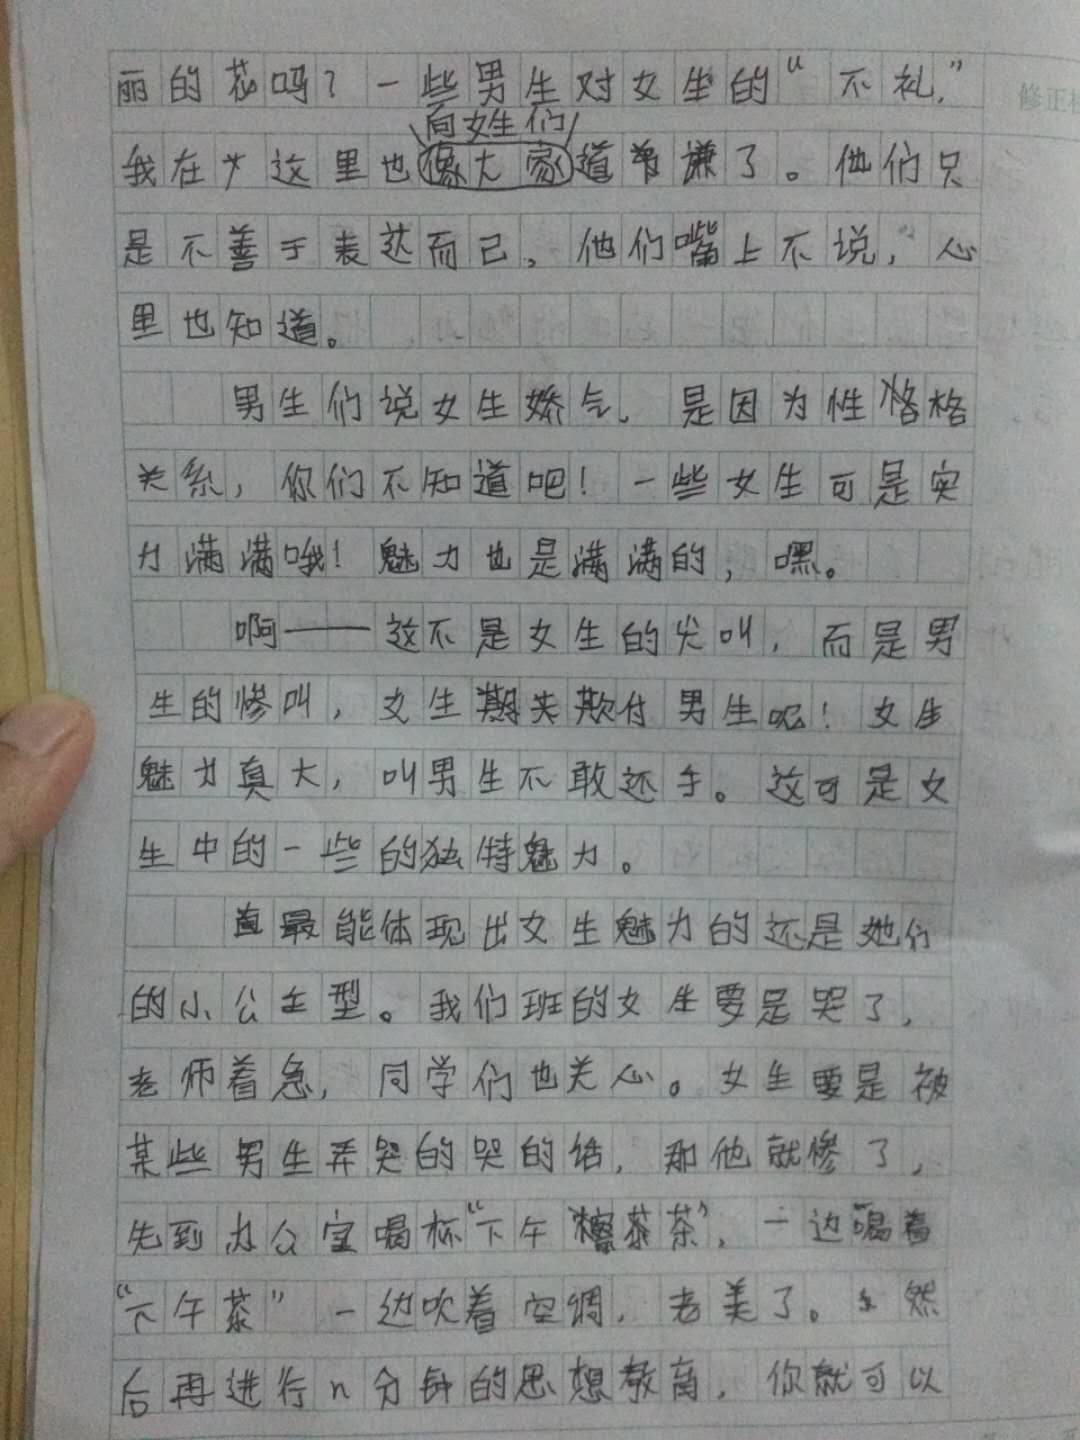 丽的花吗？一些男生对女生的“不礼，”
向女生们
我在这里也像大家道谦了。他们只
是不善于表达而已，他们嘴上不说，心
里也知道。
男生们说女生娇气，是因为性格
关系，你们不知道吧！一些女生可是实
力满满哦！魅力也是满满的，嘿。
啊——这不是女生的尖叫，而是男
生的惨叫，女生欺付男生呢！女生
魅力真大，叫男生不敢还手。这可是女
生中的一些的独特魅力。
最能体现出女生魅力的还是她们
的小公主型。我们班的女生要是哭了，
老师着急，同学们也关心。女生要是被
某些男生弄哭的哭的话，那他就惨了，
先到办公室喝杯“下午茶”，一边喝着
“下午茶”一边吹着空调，老美了。然
后再进行n分钟的思想教育，你就可以
修正